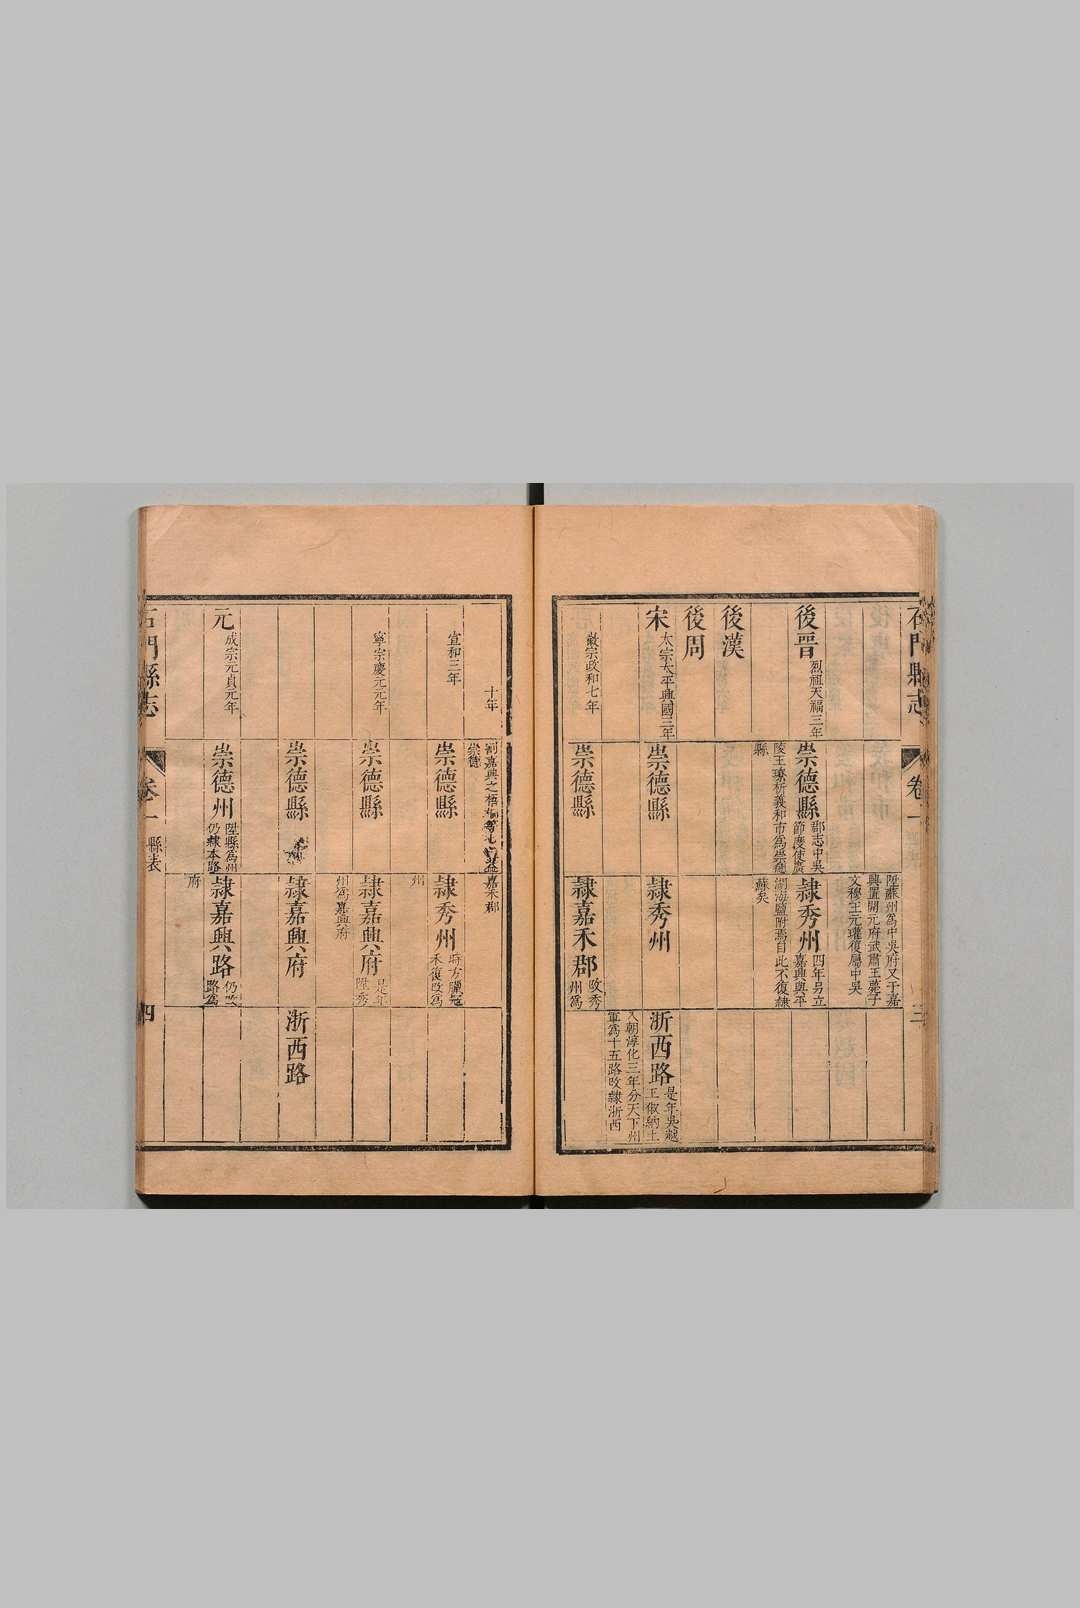 石門縣志
卷一
三
陞蘇州爲中吳府又于嘉
興置開元府武肅王薨子
文穆王元瓘復屬中吳
後晉
烈祖天福三年
崇德縣
郡志中吳
節度使廣
陵王璙析義和市爲崇德
縣
隷秀州
四年另立
嘉興興平
湖海鹽附焉自此不復隷
蘇矣
後漢
後周
宋
太宗太平興國三年
崇德縣
隷秀州
浙西路
是年吳越
王俶納土
入朝淳化三年分天下州
軍爲十五路改隷浙西
徽宗政和七年
崇德縣
隷嘉禾郡
改秀
州爲
十年
割嘉興之梧桐
嘉禾郡
崇德
宣和三年
崇德縣
隷秀州
時方臘冦
禾復改爲
州
寧宗慶元元年
崇德縣
隷嘉興府
是年
陞秀
州爲嘉興府
崇德縣
隷嘉興府
浙西路
元
成宗元貞元年
崇德州
陞縣爲州
仍隷本路
隷嘉興路
仍改
路爲
府
石門縣志
卷一
縣表
四